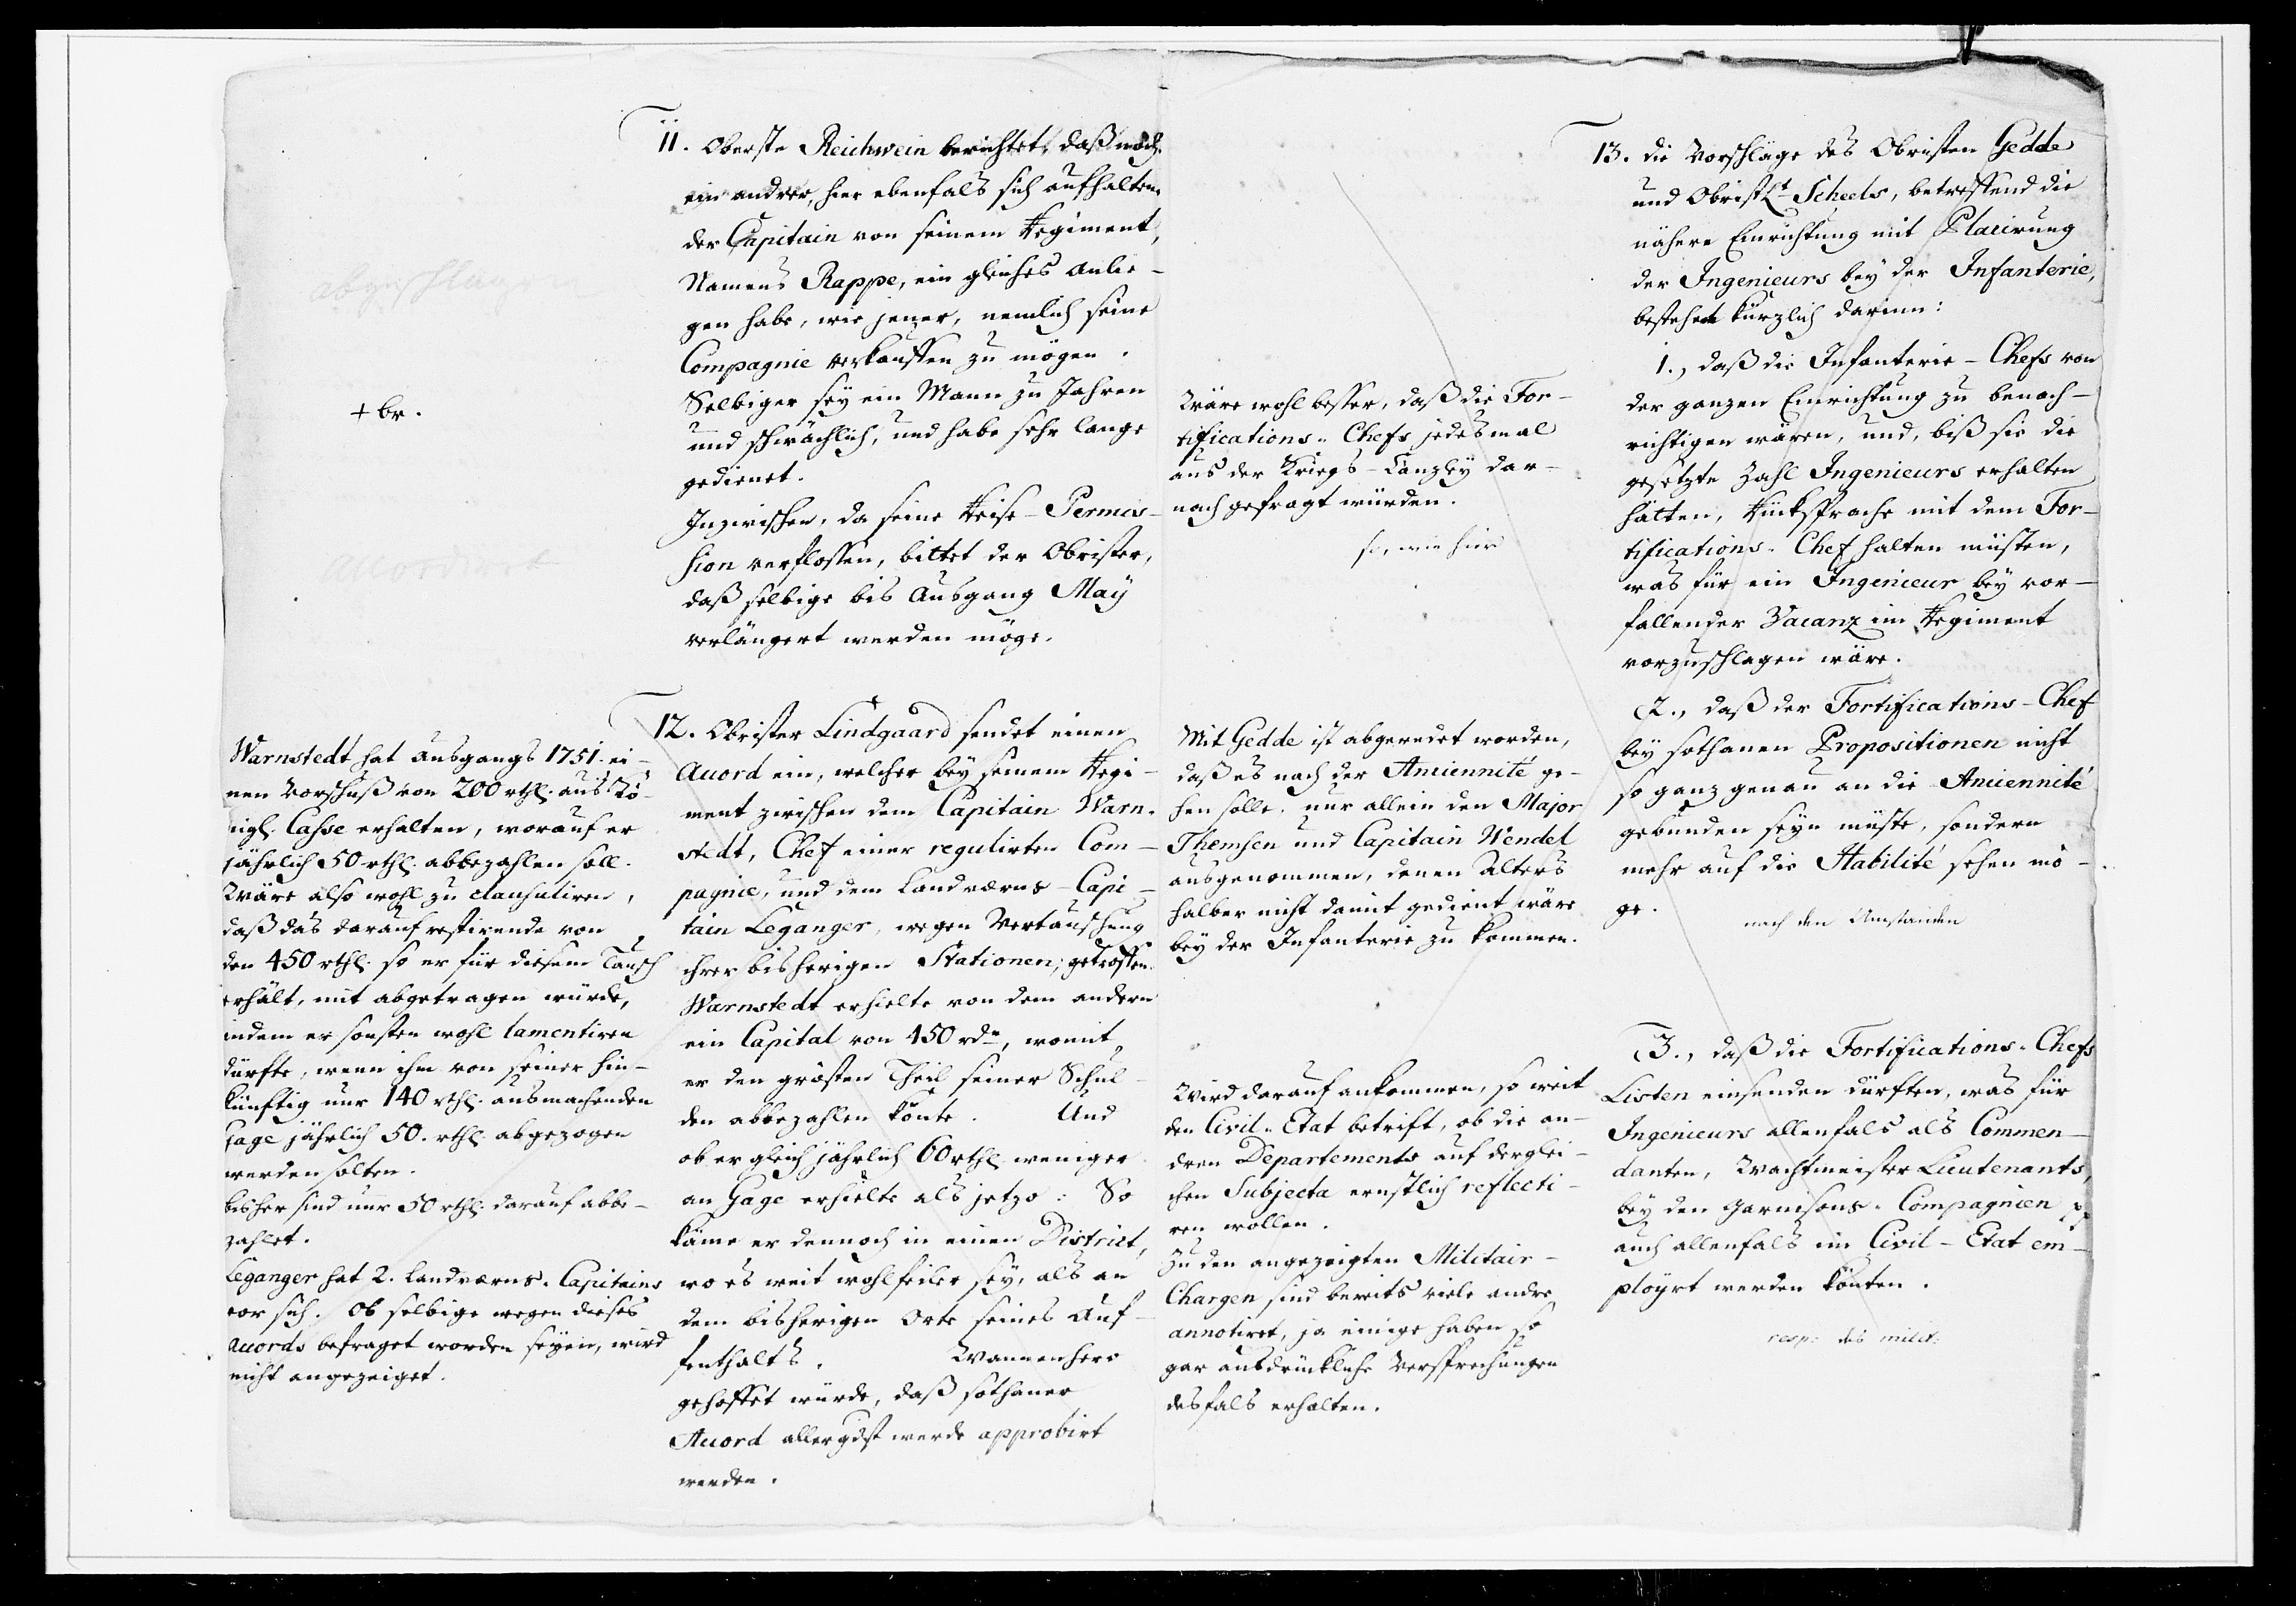 abgeschlagen
+ br.
accordiret
Warnstedt hat ausgangs 1751. ei-
nen Vorschuß von 200 rthl. aus Kö-
nigl. Casse erhalten, worauf er
jährlich 50 rthl. abbezahlen soll.
Wäre also wohl zu clausuliren,
daß das darauf restirende von
den 450 rthl. so er für diesem Tausch
erhält, mit abgetragen würde,
indem er sonsten wohl lamentiren
dürfte, wenn ihm von seiner hin-
künftig nur 140 rthl. ausmachenden
Gage jährlich 50. rthl. abgezogen
werden solten.
bisher sind nur 50 rthl. darauf abbe-
zahlet.
Leganger hat 2. Landværns-Capitains
vor sich. Ob selbige wegen dieses
Accords befraget worden seyen, wird
nicht angezeiget.
11. Oberste Reichwein berichtet, daß noch
ein andrer, hier ebenfals sich aufhalten-
der Capitain von seinem Regiment,
Namens Rappe, ein gleiches Anlie-
gen habe, wie jener, nemlich seine
Compagnie verkauffen zu mögen.
Selbiger sey ein Mann zu Jahren
und schwächlich, und habe sehr lange
gedienet.
Inzwischen, da seine Reise-Permis-
sion verflossen, bittet der Obrister,
daß selbige bis Ausgang May
verlängert werden möge.
12. Obrister Lindgaard sendet einen
Accord ein, welcher bey seinem Regi-
ment zwischen dem Capitain Warn-
stedt, Chef einer regulirten Com-
pagnie, und dem Landværns-Capi-
tain Leganger, wegen Vertauschung
ihrer bisherigen Stationen, getroffen.
Warnstedt erhielte von dem andern
ein Capital von 450 rd., womit
er den grösten Theil seiner Schul-
den abbezahlen könte. Und
ob er gleich jährlich 60 rthl. weniger
an Gage erhielte als jetzo: So
käme er dennoch in einen District,
wo es weit wohlfeiler sey, als an
dem bisherigen Orte seines Auf-
fenthalts. Wannenhero
gehoffet würde, daß sothaner
Accord allergdst werde approbirt
werden.
Wäre wohl besser, daß die For-
tifications-Chefs jedesmal
aus der Kriegs-Canzley dar-
nach gefragt würden.
so, wie hier
Mit Gedde ist abgeredet worden,
daß es nach der Anciennité ge-
hen solle. nur allein den Major
Themsen und Capitain Wendel
ausgenommen, denen Alters
halber nicht damit gedient wäre
bey der Infanterie zu kommen.
Wird darauf ankommen, so weit
den Civil-Etat betrift, ob die an-
dren Departements auf derglei-
chen Subjecta ernstlich reflecti-
ren wollen.
Zu den angezeigten Militair-
Chargen sind bereits viele andre
annotiret, ja einige haben so
gar ausdrückliche Versprechungen
desfals erhalten.
13. die Vorschläge des Obristen Gedde
und Obristlt Scheels, betreffend die
nähere Einrichtung mit Placirung
der Ingenieurs bey der Infanterie,
bestehet kürzlich darinn:
1., daß die Infanterie-Chefs von
der ganzen Einrichtung zu benach-
richtigen wären, und, biß sie die
gesetzte Zahl Ingenieurs erhalten
hätten, Rücksprache mit dem For-
tifications-Chef halten müsten,
was für ein Ingenieur bey vor-
fallender Vacanz im Regiment
vorzuschlagen wäre.
2., daß der Fortifications-Chef
bey sothanen Propositionen nicht
so ganz genau an die Anciennité
gebunden seyn müste, sondern
mehr auf die Habilité sehen mö-
ge.
nach den Umständen
3., daß die Fortifications-Chefs
Listen einsenden dürften, was für
Ingenieurs allenfals als Commen-
danten, Wachtmeister Lieutenants,
bey den Garnisons-Compagnien pp
auch allenfals im Civil-Etat em-
ployrt werden könten.
resp: des milit: